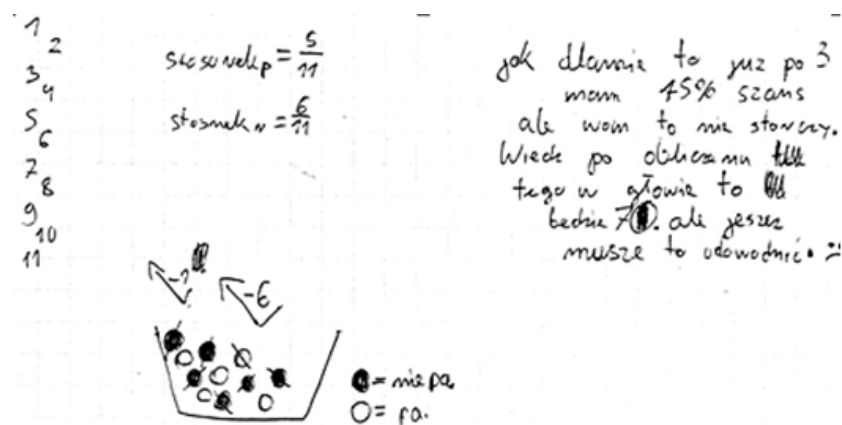 1
2
3
4
5
6
7
8
9
10
11
stosunek p = 5/11
stosunek n = 6/11
jak dlamnie to juz po 3
mam 45% szans
ale wam to nie starczy.
Wieck po obliczeniu
tego w głowie to
bedzie 7 . ale jeszcz
musze to udowodnić. :)
-1
-6
= nie pa.
= pa.